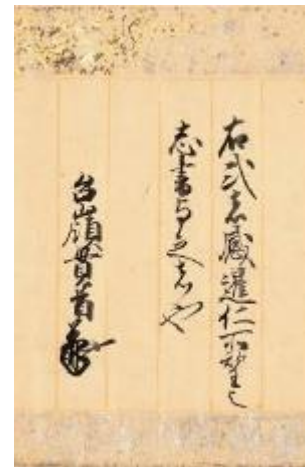 右式者感仁所望之
志書与之者也
台嶺貫首